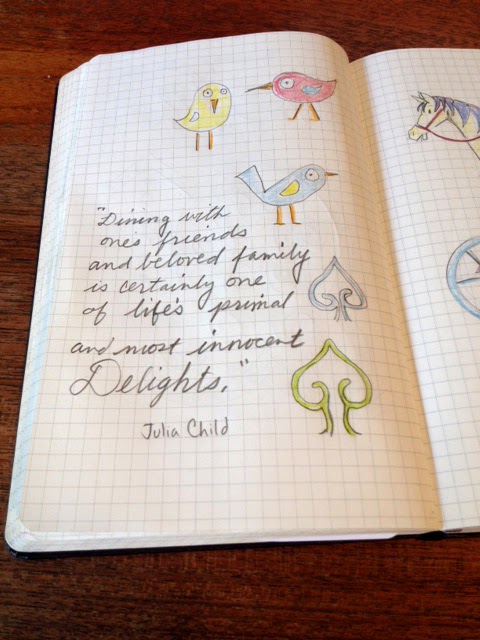 "Dining with
ones friends
and beloved family
is certainly one
of life's primal
and most innocent
Delights."
Julia Child